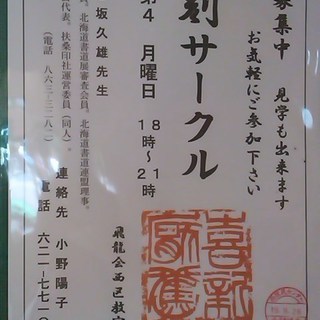 募集中 見学も出来ます
お気軽にご参加下さい
刻サークル
第4 月曜日 18時～21時
坂久雄先生
北海道書道展審査会員。北海道書道連盟理事。
代表。扶桑印社運営委員(同人)。
(電話 八六三-三二八二)
飛龍会西区教室
連絡先 小野陽子
電話 六二一-七七一